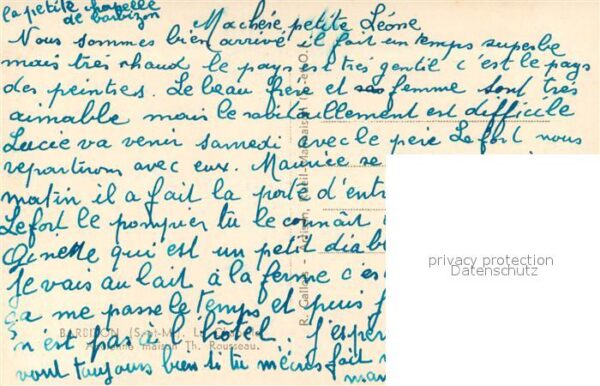 la petite chapelle
de barbizon
Ma chére petite Léone
Nous sommes bien arrivé il fait un temps superbe
mais trés chaud le pays est trés gentil c'est le pays
des peintres. Le beau frere et sa femme sont trés
aimable mais le ravitaillement est difficile
Lucie va venir samedi avec le pére Lefort nous
repartirons avec eux. Maurice se
matin il a fait la porte d'entr
Lefort le pompier tu le connait
Ginette qui est un petit diabl
Je vais au lait à la ferme c'es
ça me passe le temps et puis
n'est pas à l'hotel. J'esper
vont toujours bien ti tu
BARBIZON (S.-et-M.)
Ancienne maison Th. Rousseau.
privacy protection
Datenschutz